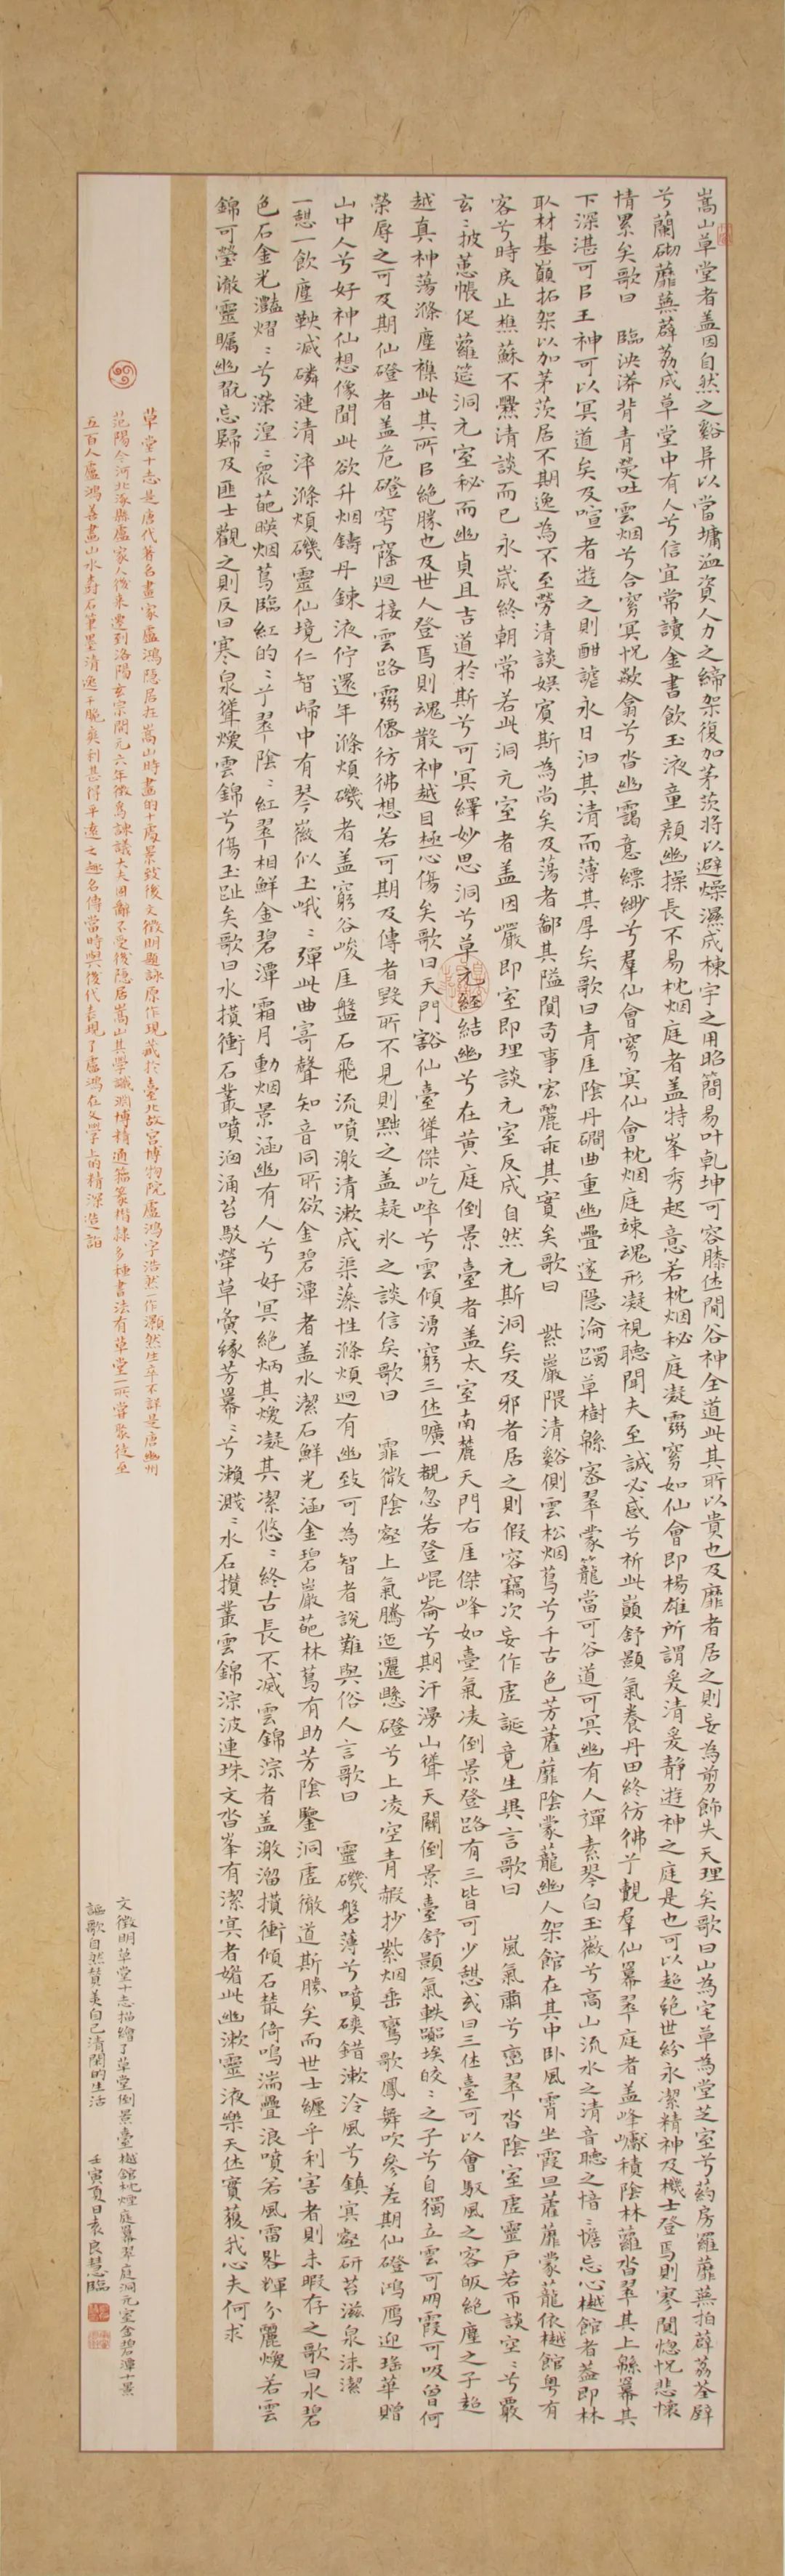 嵩山草堂者盖因自然之谿阜以當墉洫資人力之締架復加茅茨將以避燥濕成棟宇之用昭簡易叶乾坤可容膝休閒谷神全道此其所以貴也及靡者居之則妄為剪飾失天理矣歌曰山為宅草為堂芝室兮葯房羅蘼蕪拍薜荔荃壁
兮蘭砌蘼蕪薜荔成草堂中有人兮信宜常讀金書飲玉液童顏幽操長不易枕烟庭者盖特峯秀起意若枕烟秘庭凝霛窅如仙會即楊雄所謂爰清爰靜遊神之庭是也可以超絕世紛永潔精神及機士登焉則寥閴惚怳悲懷
情累矣歌曰 臨泱漭背青熒吐雲烟兮合窅冥怳欻翕兮沓幽靄意縹緲兮羣仙會窅冥仙會枕烟庭竦魂形凝視聽聞夫至誠必感兮祈此巔舒顥氣養丹田終彷彿兮覿羣仙冪翠庭者盖峰巘積陰林蘿沓翠其上緜冪其
下深湛可㠯王神可以冥道矣及喧者遊之則酣謔永日汩其清而薄其厚矣歌曰青厓陰丹磵曲重幽疊邃隱淪躅草樹緜密翠蒙籠當可谷道可冥幽有人彈素琴白玉徽兮高山流水之清音聽之愔愔忘心樾館者盖即林
取材基巔拓架以加茅茨居不期逸為不至勞清談娛賓斯為尚矣及蕩者鄙其隘闃苟事宏麗乖其實矣歌曰 紫巖隈清谿側雲松烟蔦兮千古色芳藋蘼陰蒙蘢幽人架館在其中卧風霄坐霞旦藋蘼蒙蘢依樾館粵有
客兮時戾止樵蘇不爨清談而已永歲終朝常若此洞元室者盖因巖即室即理談元室反成自然元斯洞矣及邪者居之則假容竊次妄作虛誕竟生異言歌曰 嵐氣肅兮巒翠沓陰室虛靈戶若帀談空:兮覈
玄:披蕙帳促蘿筵洞元室秘而幽貞且吉道於斯兮可冥繹妙思洞兮草元經結幽兮在黃庭倒景臺者盖太室南麓天門右厓傑峰如臺氣凌倒景登路有三皆可少憇或曰三休臺可以會馭風之客皈絕塵之子超
越真神蕩滌塵襟此其所㠯絕勝也及世人登焉則魂散神越目極心傷矣歌曰天門豁仙臺聳傑屹崒兮雲傾湧窮三休曠一覩忽若登崐崙兮期汗漫山聳天關倒景臺舒顥氣軼囂埃皎:之子兮自獨立雲可朋霞可吸曾何
榮辱之可及期仙磴者盖危磴穹窿迴接雲路霛僊彷彿想若可期及傳者毀所不見則黜之盖疑氷之談信矣歌曰 霏微陰壑上氣騰迤邐懸磴兮上凌空青霞抄紫烟垂鸞歌鳳舞吹參差期仙磴鴻鴈迎瑤華贈
山中人兮好神仙想像聞此欲升烟鑄丹鍊液佇還年滌煩磯者盖窮谷峻厓盤石飛流噴激清漱成渠藻性滌煩迥有幽致可為智者說難與俗人言歌曰 靈磯磐薄兮噴磢錯漱泠風兮鎮冥壑研苔滋泉沬潔
一憇一飲塵鞅减磷漣清泙滌煩磯靈仙境仁智㱕中有琴徽似玉峨:彈此曲寄聲知音同所欲金碧潭者盖水潔石鮮光涵金碧巖葩林蔦有助芳陰鑒洞虛徹道斯勝矣而世士纏乎利害者則未暇存之歌曰水碧
色石金光灩熠:兮濴湟:泉葩映烟蔦臨紅的:兮翠陰:紅翠相鮮金碧潭霜月動烟景涵幽有人兮好冥絕炳其煥凝其潔悠:終古長不减雲錦淙者盖激溜攢衝傾石叢倚鳴湍疊浪噴若風雷詭輝分麗煥若雲
錦可瑩澈靈矚幽翫忘歸及匪士觀之則反曰寒泉聳煥雲錦兮傷玉趾矣歌曰水攢衝石叢噴洶涌苔駁犖草夤緣芳冪:兮瀨濺:水石攢叢雲錦淙波連珠文沓峯有潔冥者媚此幽漱靈液樂天休實獲我心夫何求
草堂十志是唐代著名畫家盧鴻隱居在嵩山時畫的十處景致後文徵明題詠原作現藏於臺北故宮博物院盧鴻字浩然一作灝然生卒不詳是唐幽州
范陽今河北涿縣盧家人後來遷到洛陽玄宗開元六年徵為諫議大夫固辭不受後隱居嵩山其學識淵博精通籀篆楷隸多種書法有草堂一所嘗聚徒至
五百人盧鴻善畫山水樹石筆墨清逸平脆爽利甚得平遠之趣名傳當時與後代表現了盧鴻在文學上的精深造詣
文徵明草堂十志描繪了草堂倒景臺樾館枕煙庭冪翠庭洞元室金碧潭十景
謳歌自然贊美自己清閑的生活 壬寅夏日袁良慧臨